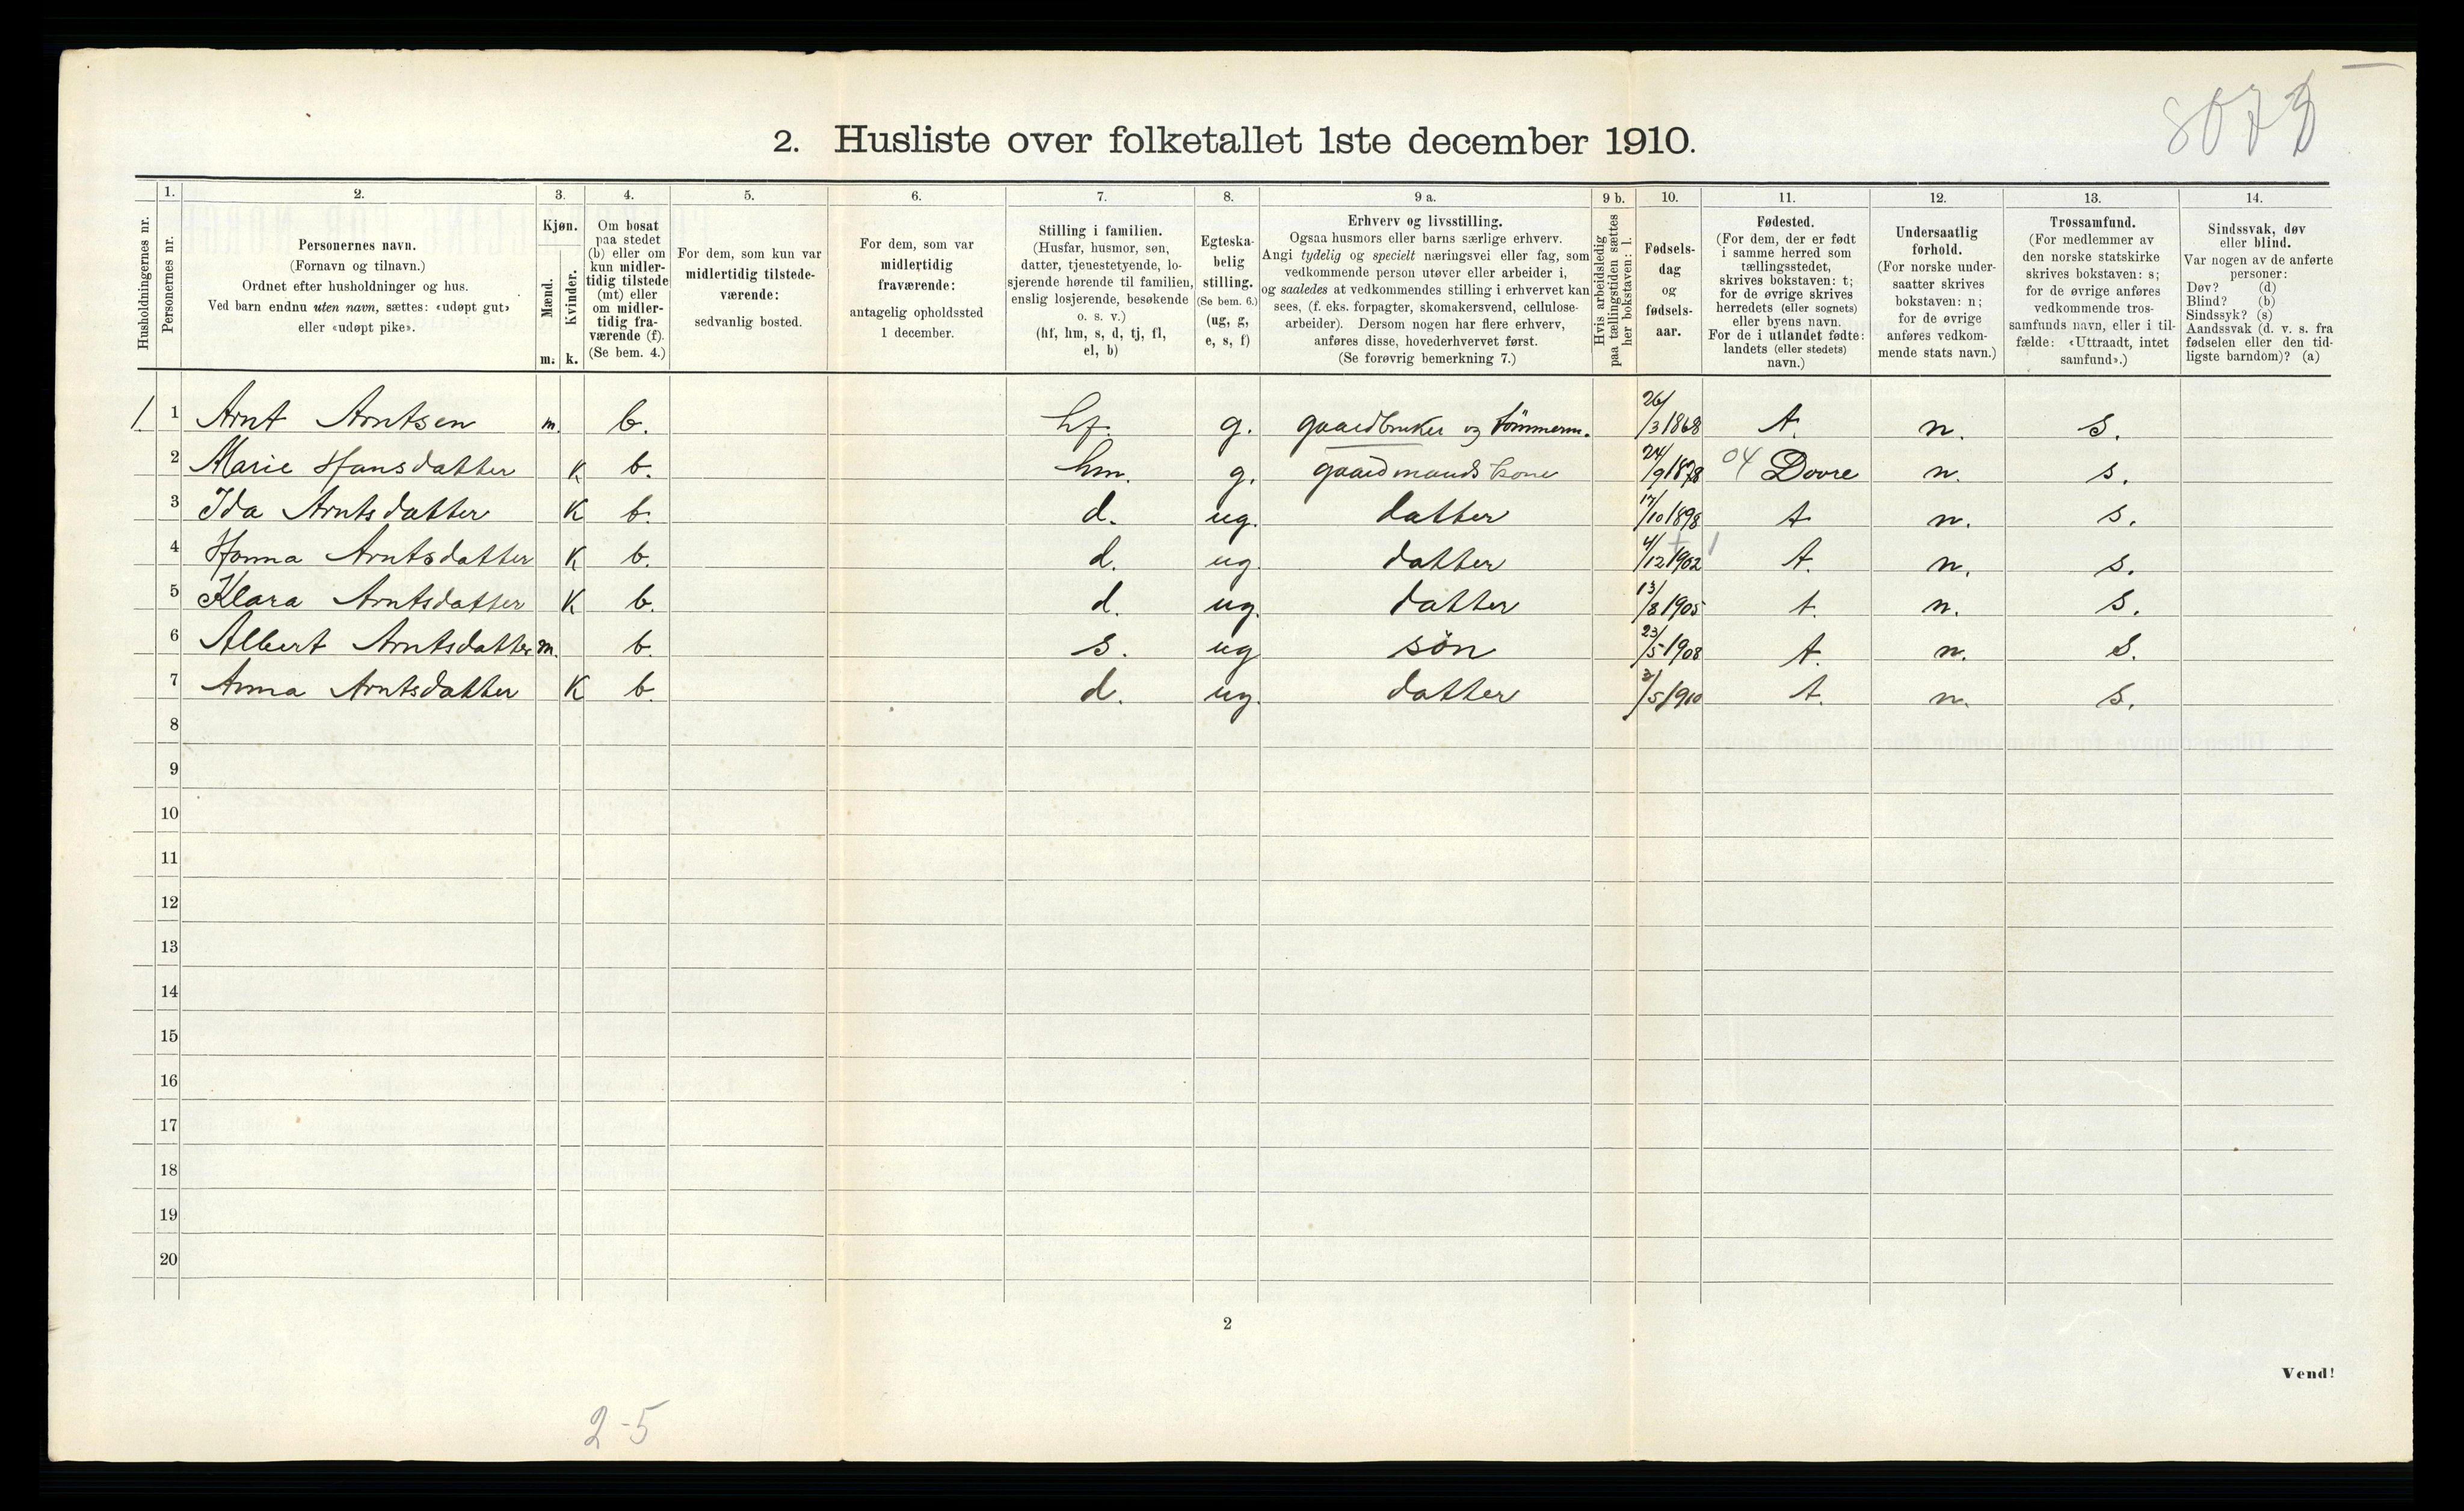 8073
2. Husliste over folketallet 1ste december 1910.
Husholdningernes nr.
1. Personernes nr.
2. Personernes navn.
(Fornavn og tilnavn.)
Ordnet efter husholdninger og hus.
Ved barn endnu uten navn, sættes: «udøpt gut»
eller «udøpt pike».
3. Kjøn.
Mænd. m.
Kvinder. k.
4. Om bosat
paa stedet
(b) eller om
kun midler-
tidig tilstede
(mt) eller
om midler-
tidig fra-
værende (f).
(Se bem. 4.)
5. For dem, som kun var
midlertidig tilstede-
værende:
sedvanlig bosted.
6. For dem, som var
midlertidig
fraværende:
antagelig opholdssted
1 december.
7. Stilling i familien.
(Husfar, husmor, søn,
datter, tjenestetyende, lo-
sjerende hørende til familien,
enslig losjerende, besøkende
o. s. v.)
(hf, hm, s, d, tj, fl,
el, b)
8. Egteska-
belig
stilling.
(Se bem. 6.)
(ug, g,
e, s, f)
9 a. Erhverv og livsstilling.
Ogsaa husmors eller barns særlige erhverv.
Angi tydelig og specielt næringsvei eller fag, som
vedkommende person utøver eller arbeider i,
og saaledes at vedkommendes stilling i erhvervet kan
sees, (f. eks. forpagter, skomakersvend, cellulose-
arbeider). Dersom nogen har flere erhverv,
anføres disse, hovederhvervet først.
(Se forøvrig bemerkning 7.)
9 b. Hvis arbeidsledig
paa tællingstiden sættes
her bokstaven: l.
10. Fødsels-
dag
og
fødsels-
aar.
11. Fødested.
(For dem, der er født
i samme herred som
tællingsstedet,
skrives bokstaven: t;
for de øvrige skrives
herredets (eller sognets)
eller byens navn.
For de i utlandet fødte:
landets (eller stedets)
navn.)
12. Undersaatlig
forhold.
(For norske under-
saatter skrives
bokstaven: n;
for de øvrige
anføres vedkom-
mende stats navn.)
13. Trossamfund.
(For medlemmer av
den norske statskirke
skrives bokstaven: s;
for de øvrige anføres
vedkommende tros-
samfunds navn, eller i til-
fælde: «Uttraadt, intet
samfund».)
14. Sindssvak, døv
eller blind.
Var nogen av de anførte
personer:
Døv? (d)
Blind? (b)
Sindssyk? (s)
Aandssvak (d. v. s. fra
fødselen eller den tid-
ligste barndom)? (a)
1 1 Arnt Arntsen m. b. hf. g. gaardbruker og tömmerm. 26/3 1868 t. n. s.
2 Marie Hansdatter K b. hm. g. gaardmands kone 24/9 1878 04 Dovre n. s.
3 Ida Arntsdatter K b. d. ug. datter 17/10 1898 t n. s.
4 Hanna Arntsdatter K b. d. ug. datter 4/12 1902 t. n. s.
5 Klara Arntsdatter K b. d. ug. datter 13/8 1905 t. n. s.
6 Albert Arntsdatter m. b. s. ug søn 23/5 1908 t. n. s.
7 Anna Arntsdatter K b. d. ug. datter 2/5 1910 t. n. s.
8
9
10
11
12
13
14
15
16
17
18
19
20
2
Vend!
2-5